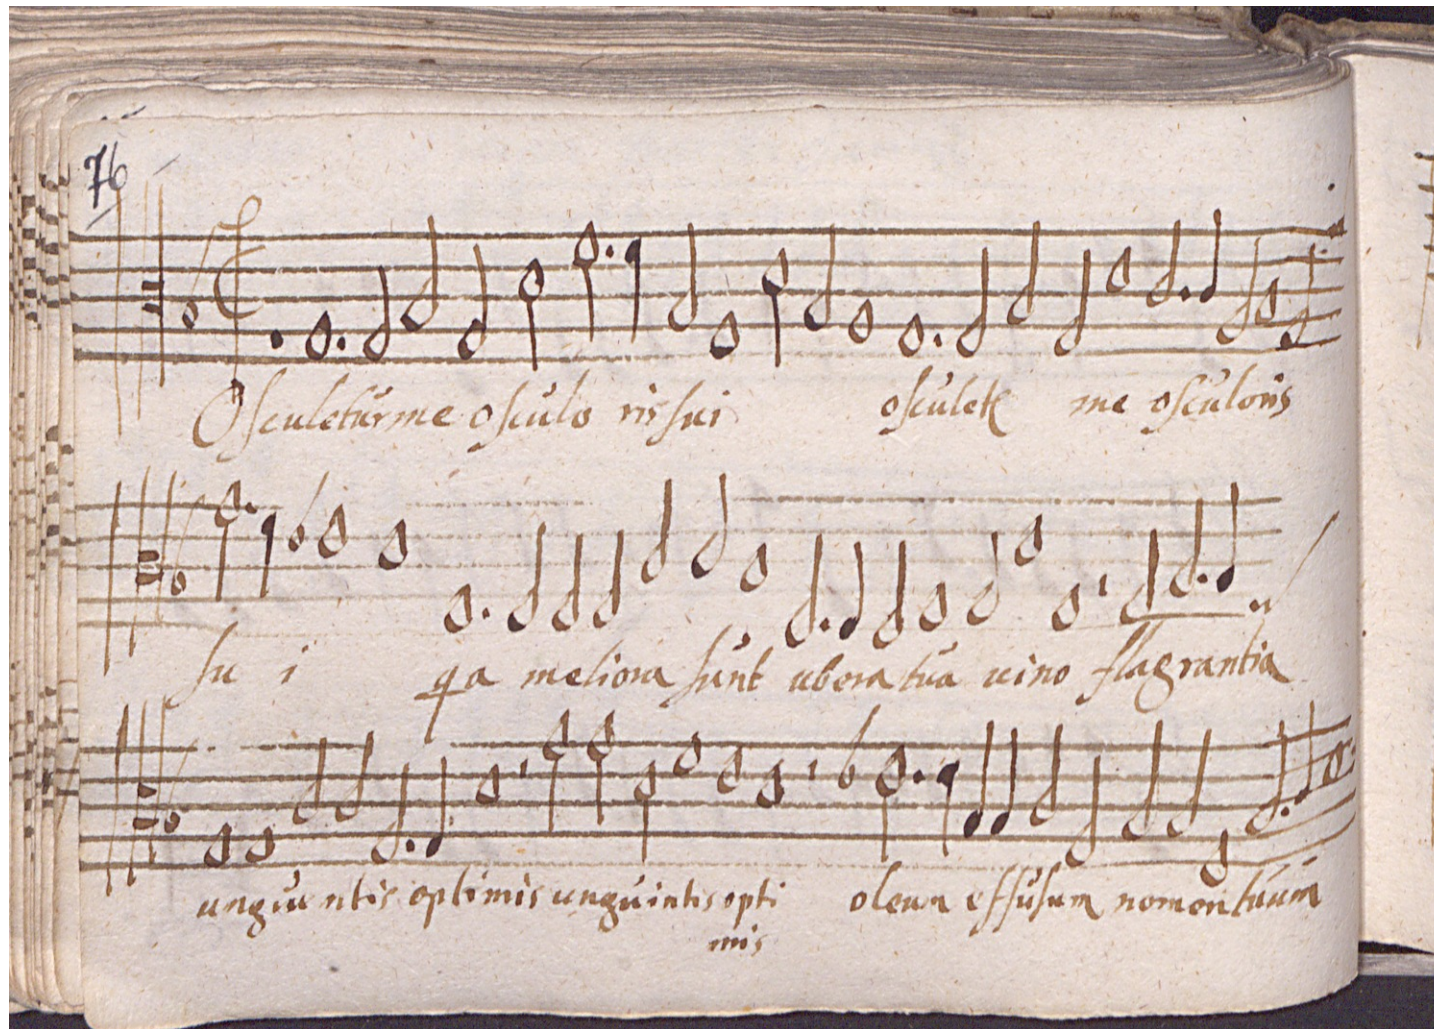 76
Osculetur me osculo ris sui osculet me osculoris
su i qa meliora sunt ubera tua uino flagrantia
unguentis optimis unguintis opti oleum effusum nomen tuum
mis